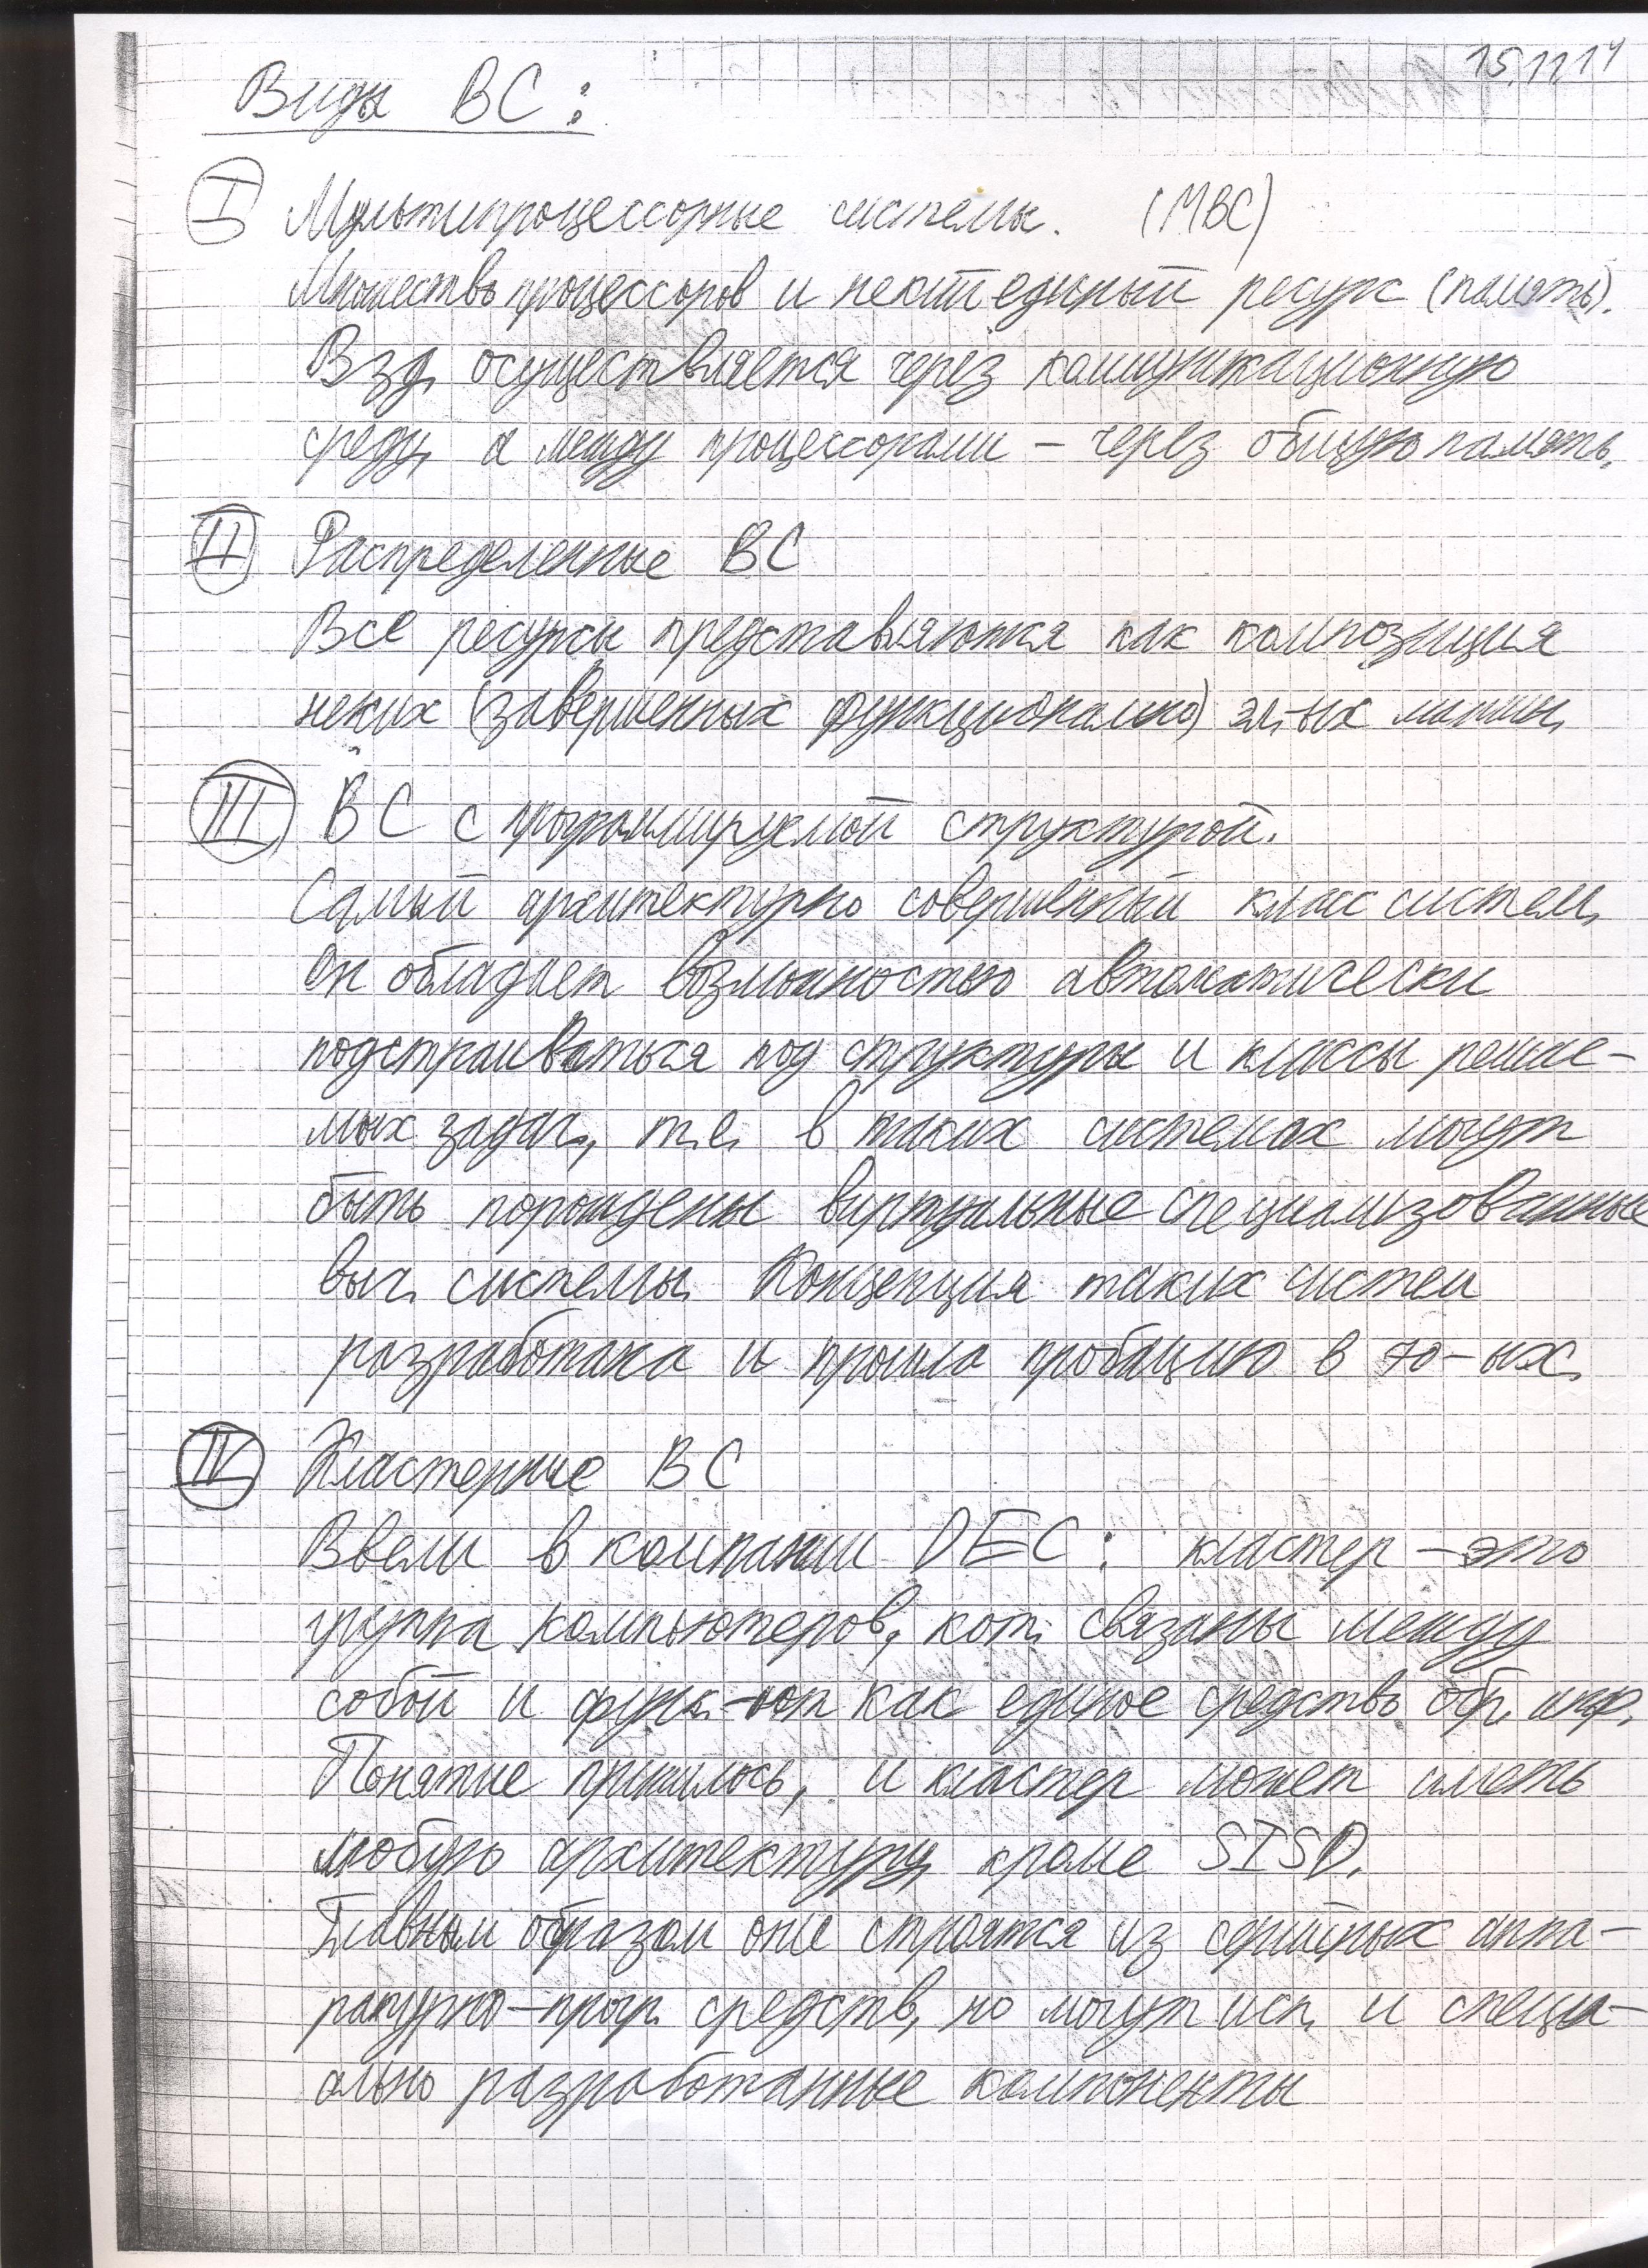 15.11.14
Виды ВС:
I Мультипроцессорные системы. (МВС)
Множество процессоров и некий единый ресурс (память).
Взд. осуществляется через коммуникационную
среду, а между процессорами – через общую память.
II Распределенные ВС
Все ресурсы представляются как композиция
неких (завершенных функционально) эл-ых машин.
III ВС с программируемой структурой.
Самый архитектурно совершенный класс систем.
Он обладает возможностью автоматически
подстраиваться под структуры и классы решае-
мых задач, т.е. в таких системах могут
быть порождены виртуальные специализованные
выч. системы. Концепция таких систем
разработана и прошла пробацию в 70-ых.
IV Кластерные ВС
Ввели в компании DEC: кластер – это
группа компьютеров, кот. связаны между
собой и функ-ют как единое средство обр. инф.
Понятие прижилось, и кластер может иметь
любую архитектуру, кроме SISD.
Главным образом они строятся из серийных аппа-
ратурно-прогр. средств, но могут исп. и специ-
ально разработанные компоненты